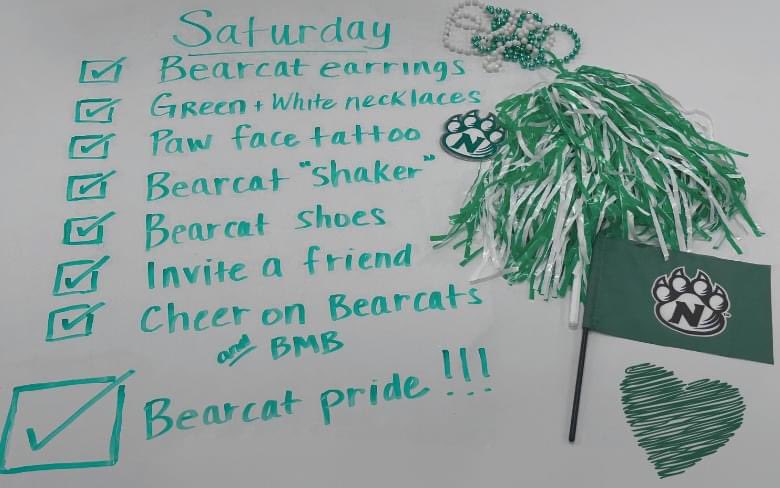 Saturday
Bearcat earrings
Green + White necklaces
Paw face tattoo
Bearcat "shaker"
Bearcat shoes
Invite a friend
Cheer on Bearcats
and BMB
Bearcat pride!!!
N
N